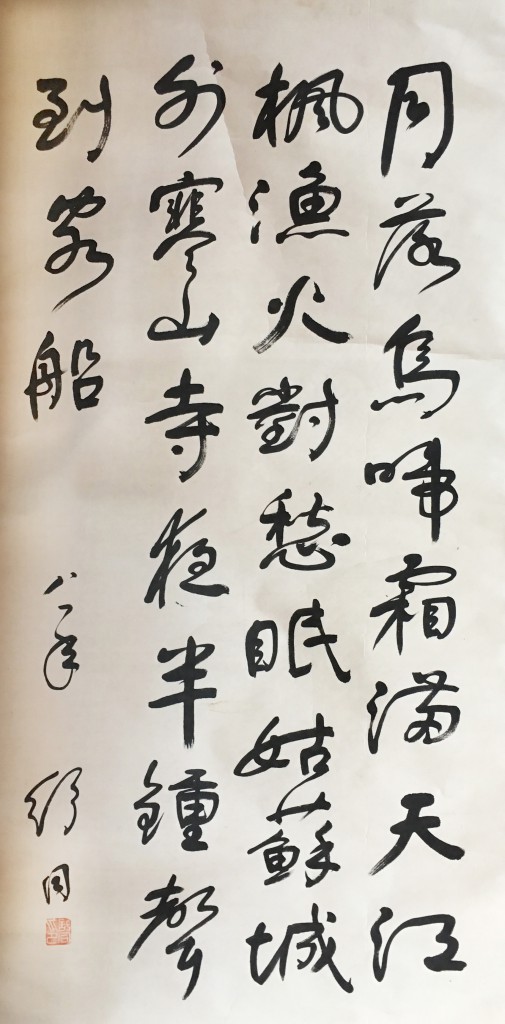 月落烏啼霜滿天江
楓漁火對愁眠姑蘇城
外寒山寺夜半鐘聲
到客船
八一年 舒同